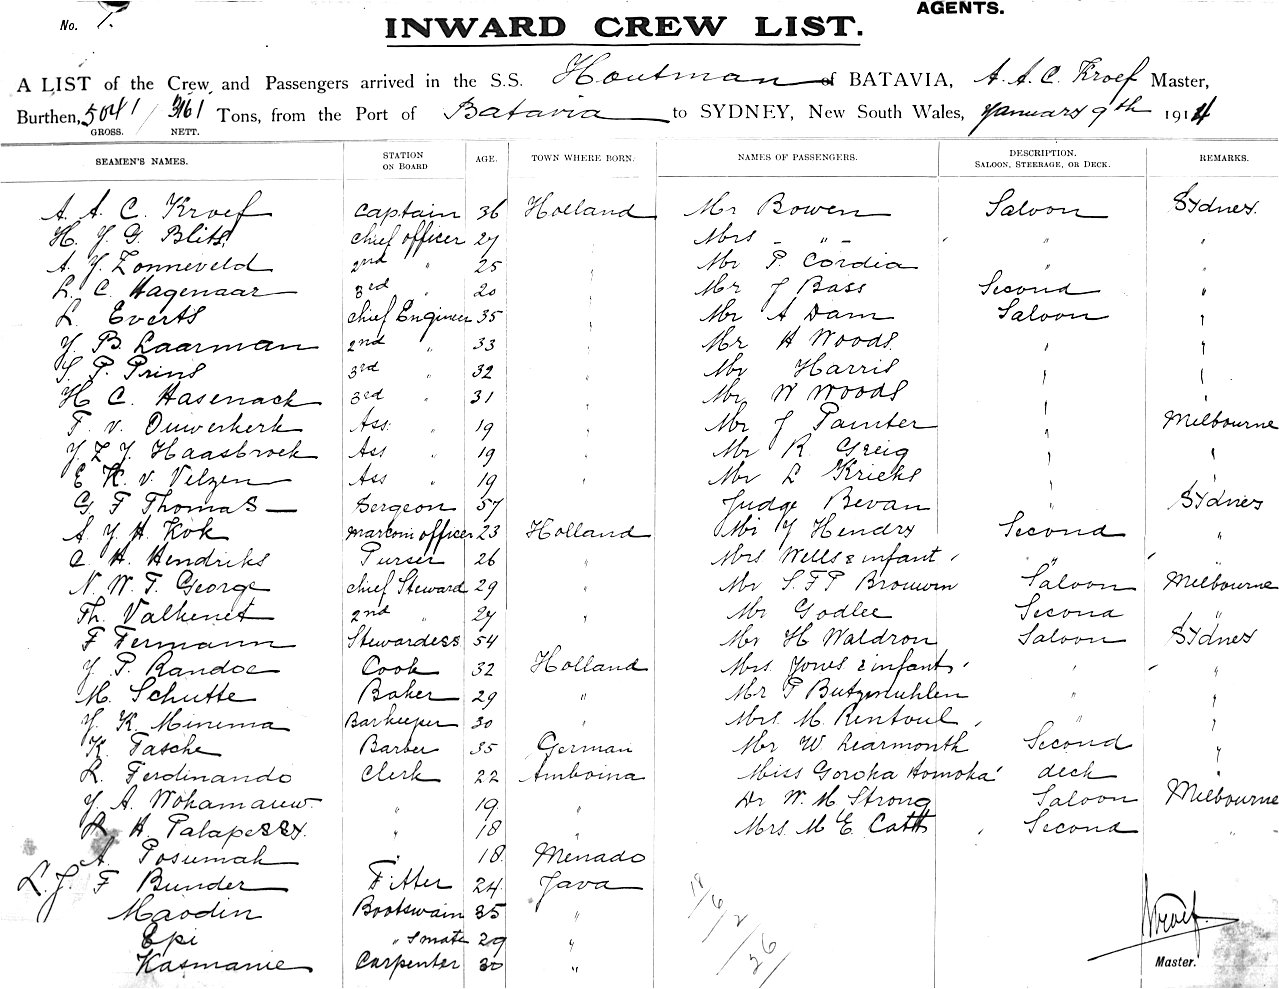 AGENTS.
No. 7.
INWARD CREW LIST.
A LIST of the Crew and Passengers arrived in the S.S. Houtman of BATAVIA, A. A. C. Kroef Master,
Burthen, 5041 / 3161 Tons, from the Port of Batavia to SYDNEY, New South Wales, January 9th 1914
GROSS. NETT.
SEAMEN'S NAMES. STATION ON BOARD AGE. TOWN WHERE BORN. NAMES OF PASSENGERS. DESCRIPTION. SALOON, STEERAGE, OR DECK. REMARKS.
A. A. C. Kroef Captain 36 Holland Mr Bowen Saloon Sydney.
H. J. G. Blits chief officer 27 " Mrs - " - " "
A. J. Zonneveld 2nd " 25 " Mr P. Cordia " "
L. C. Hagenaar 3rd " 20 " Mr J Bass Second "
L. Everts chief Engineer 35 " Mr A Dam Saloon "
J. B. Laarman 2nd " 33 " Mr H Woods " "
S. P. Prins 3rd " 32 " Mr Harris " "
H. C. Hasenack 3rd " 31 " Mr W Woods "
F. v. Ouwerkerk Ass. " 19 " Mr J Painter " Melbourne
J. Z. J. Haasbroek Ass " 19 " Mr R. Greig " "
E K. v. Velzen Ass " 19 " Mr L Kricks " "
G. F Thomas Sergeon 57 Judge Bevan " Sydney
A. J. H. Kok marconi officer 23 Holland Mr J Hendry Second "
C. H. Hendriks Purser 26 " Mrs Wells & infant " "
N. W. F. George chief Steward 29 " Mr S. F P Brouwer Saloon Melbourne
Th. Valkenet 2nd " 27 " Mr Godlee Second "
F Fermann Stewardess 54 Mr H Waldron Saloon Sydney
J. P. Randoe Cook 32 Holland Mrs. Jones & infant " "
M. Schutte Baker 29 " Mr P Butzemuhlen " "
J. K. Minema Barkeeper 30 " Mrs. M. Rentoul " "
K. Tasche Barber 35 German Mr W Learmonth Second "
L. Ferdinando Clerk 22 Amboina Miss Goroka Homoka deck
J. A. Wohamauw. " 19. " Dr W. M Strong Saloon Melbourne
L H. Palapessy. " 18 " Mrs. M E. Catt Second "
A. Posumah " 18. Menado
L. J. F Bunder Fitter 24 Java
Maodin Bootswain 35 "
Epi " s mate 29 "
Kasmanie Carpenter 30 "
Kroef
Master.